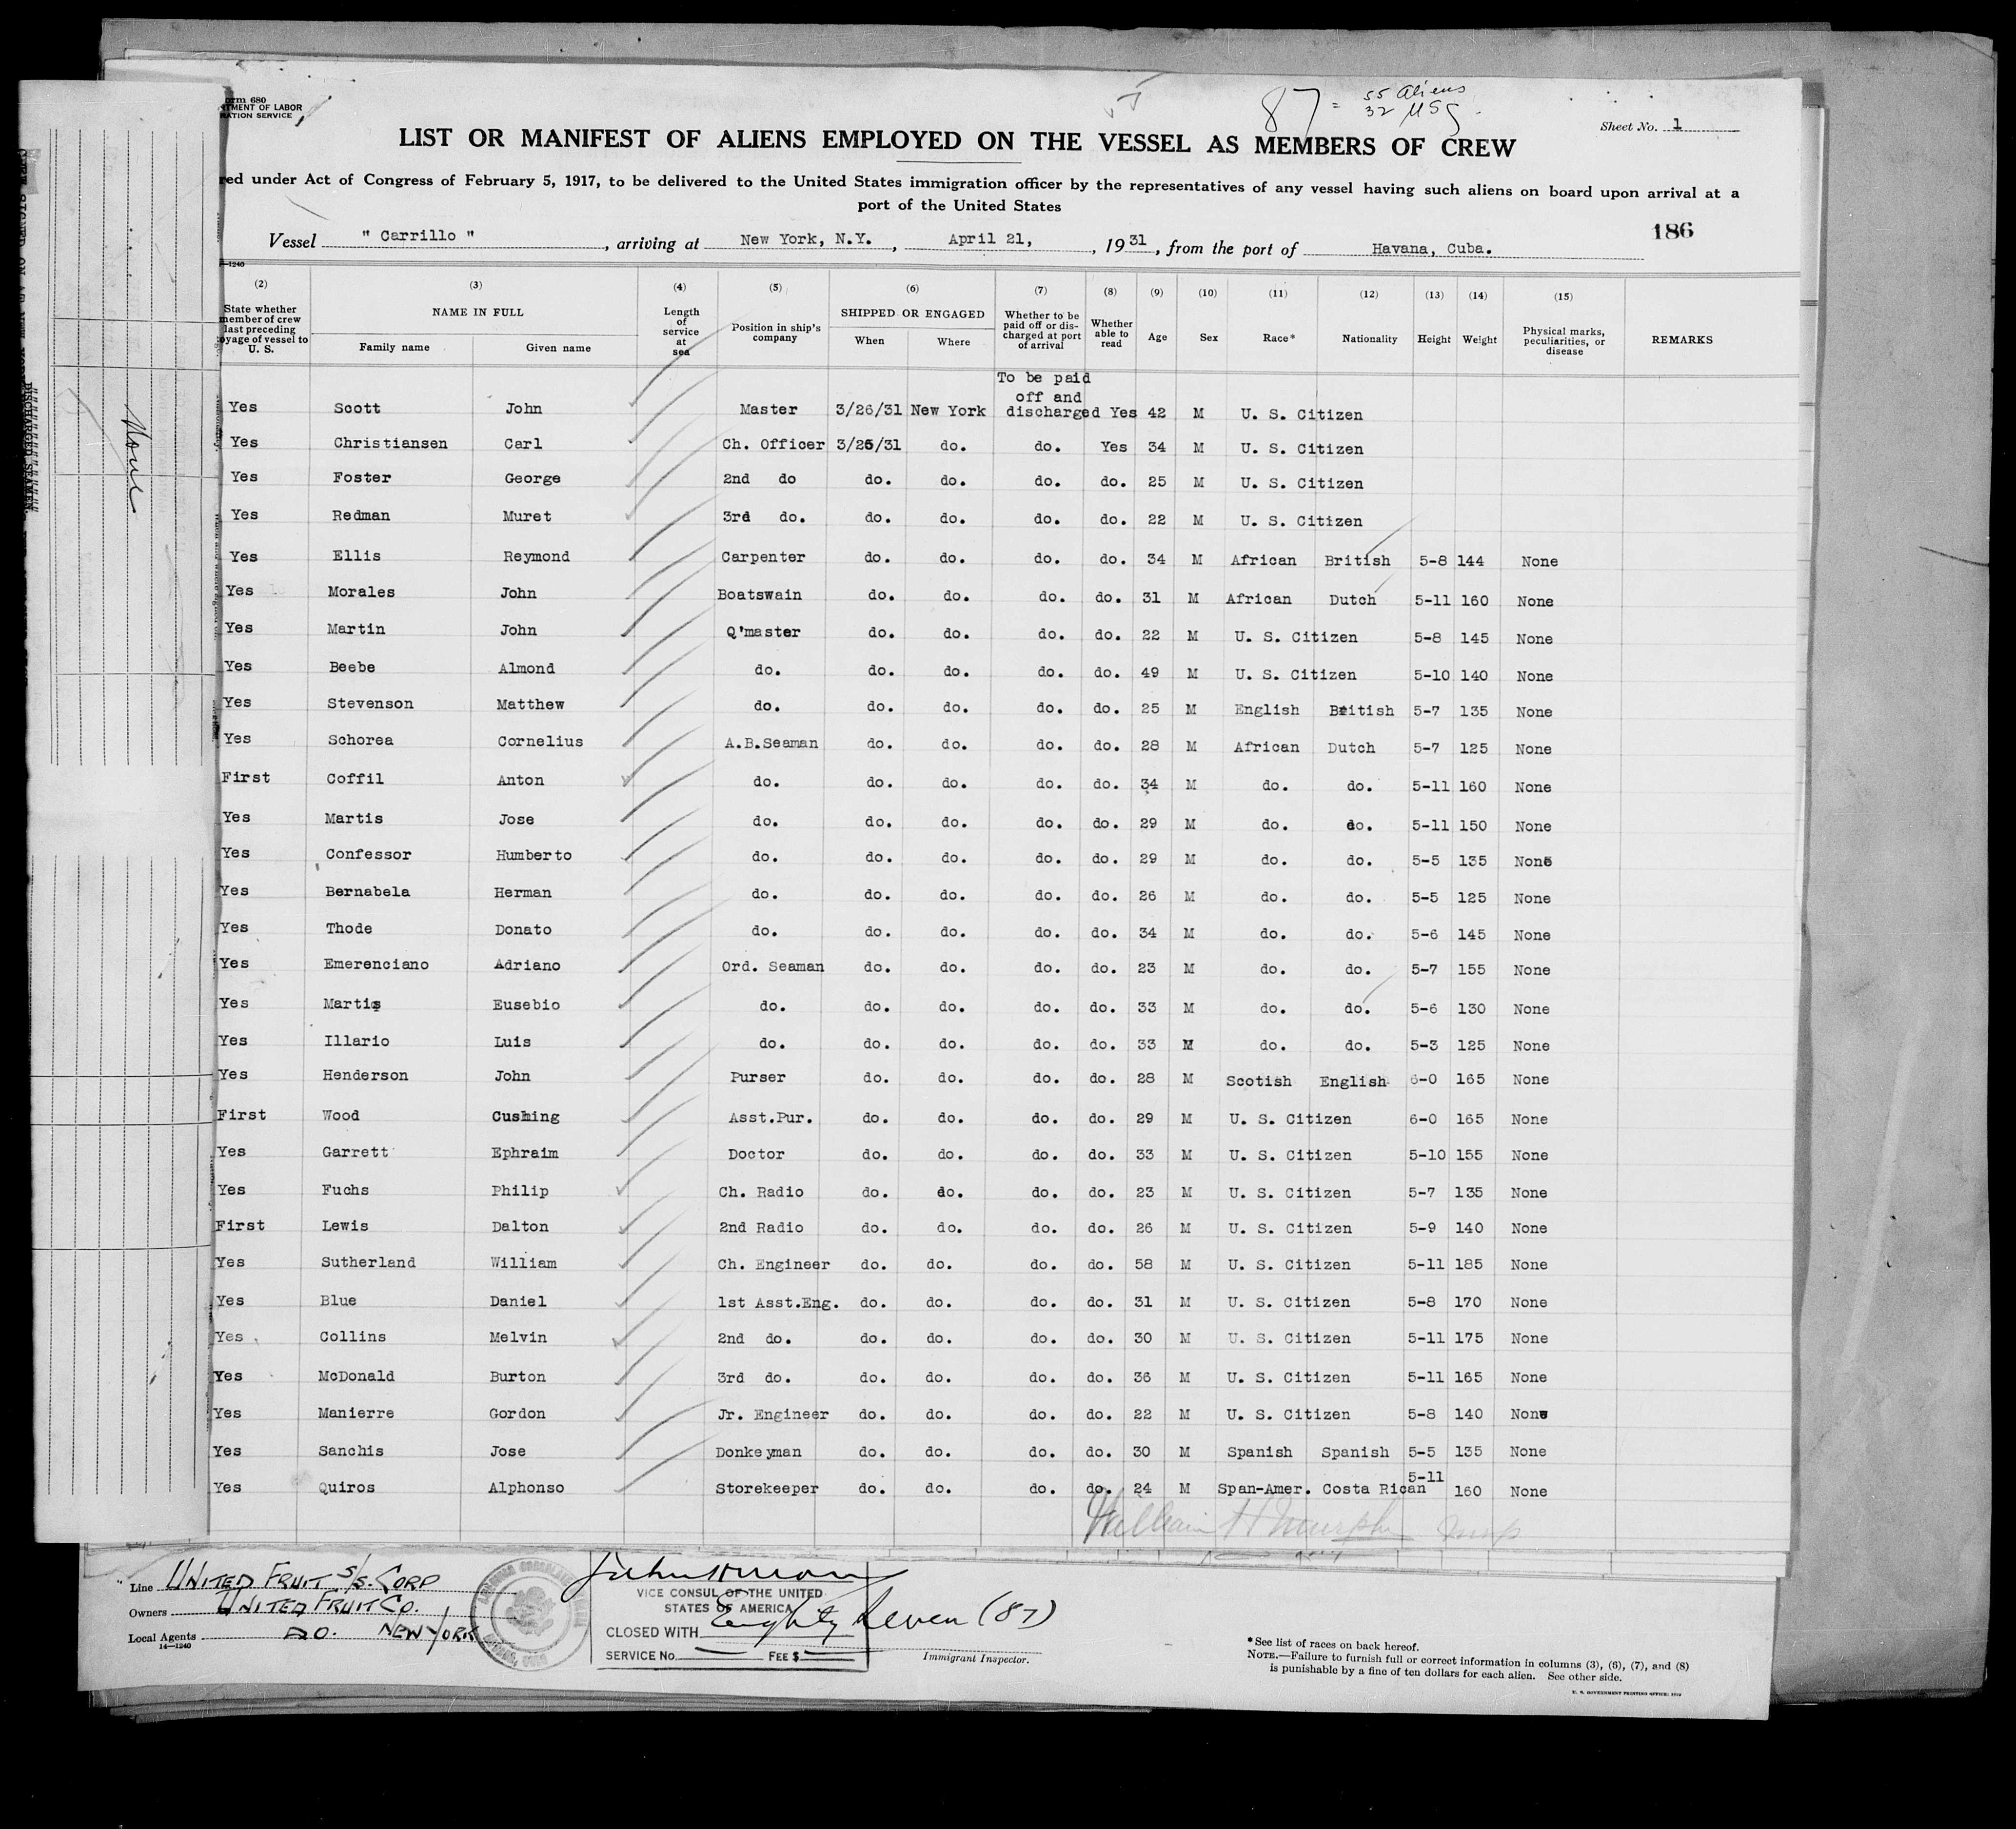 orm 680
TMENT OF LABOR
RATION SERVICE
87 = 55 Aliens
32 USs.
Sheet No. 1
LIST OR MANIFEST OF ALIENS EMPLOYED ON THE VESSEL AS MEMBERS OF CREW
red under Act of Congress of February 5, 1917, to be delivered to the United States immigration officer by the representatives of any vessel having such aliens on board upon arrival at a
port of the United States
186
Vessel " Carrillo " , arriving at New York, N.Y. , April 21, , 1931 , from the port of Havana, Cuba.
14—1240
(2) (3) (4) (5) (6) (7) (8) (9) (10) (11) (12) (13) (14) (15)
State whether member of crew last preceding oyage of vessel to U. S. NAME IN FULL Family name Given name Length of service at sea Position in ship's company SHIPPED OR ENGAGED When Where Whether to be paid off or discharged at port of arrival Whether able to read Age Sex Race* Nationality Height Weight Physical marks, peculiarities, or disease REMARKS
To be paid
off and
Yes Scott John Master 3/26/31 New York discharged Yes 42 M U. S. Citizen
Yes Christiansen Carl Ch. Officer 3/26/31 do. do. Yes 34 M U. S. Citizen
Yes Foster George 2nd do do. do. do. do. 25 M U. S. Citizen
Yes Redman Muret 3rd do. do. do. do. do. 22 M U. S. Citizen
Yes Ellis Reymond Carpenter do. do. do. do. 34 M African British 5-8 144 None
Yes Morales John Boatswain do. do. do. do. 31 M African Dutch 5-11 160 None
Yes Martin John Q'master do. do. do. do. 22 M U. S. Citizen 5-8 145 None
Yes Beebe Almond do. do. do. do. do. 49 M U. S. Citizen 5-10 140 None
Yes Stevenson Matthew do. do. do. do. do. 25 M English British 5-7 135 None
Yes Schorea Cornelius A.B.Seaman do. do. do. do. 28 M African Dutch 5-7 125 None
First Coffil Anton do. do. do. do. do. 34 M do. do. 5-11 160 None
Yes Martis Jose do. do. do. do. do. 29 M do. do. 5-11 150 None
Yes Confessor Humberto do. do. do. do. do. 29 M do. do. 5-5 135 None
Yes Bernabela Herman do. do. do. do. do. 26 M do. do. 5-5 125 None
Yes Thode Donato do. do. do. do. do. 34 M do. do. 5-6 145 None
Yes Emerenciano Adriano Ord. Seaman do. do. do. do. 23 M do. do. 5-7 155 None
Yes Martis Eusebio do. do. do. do. do. 33 M do. do. 5-6 130 None
Yes Illario Luis do. do. do. do. do. 33 M do. do. 5-3 125 None
Yes Henderson John Purser do. do. do. do. 28 M Scotish English 6-0 165 None
First Wood Cushing Asst.Pur. do. do. do. do. 29 M U. S. Citizen 6-0 165 None
Yes Garrett Ephraim Doctor do. do. do. do. 33 M U. S. Citizen 5-10 155 None
Yes Fuchs Philip Ch. Radio do. do. do. do. 23 M U. S. Citizen 5-7 135 None
First Lewis Dalton 2nd Radio do. do. do. do. 26 M U. S. Citizen 5-9 140 None
Yes Sutherland William Ch. Engineer do. do. do. do. 58 M U. S. Citizen 5-11 185 None
Yes Blue Daniel 1st Asst.Eng. do. do. do. do. 31 M U. S. Citizen 5-8 170 None
Yes Collins Melvin 2nd do. do. do. do. do. 30 M U. S. Citizen 5-11 175 None
Yes McDonald Burton 3rd do. do. do. do. do. 36 M U. S. Citizen 5-11 165 None
Yes Manierre Gordon Jr. Engineer do. do. do. do. 22 M U. S. Citizen 5-8 140 None
Yes Sanchis Jose Donkeyman do. do. do. do. 30 M Spanish Spanish 5-5 135 None
Yes Quiros Alphonso Storekeeper do. do. do. do. 24 M Span-Amer. Costa Rican 5-11 160 None
William H Murphy
Line UNITED FRUIT S/S. CORP
Owners UNITED FRUIT CO.
Local Agents DO. NEW YORK
14—1240
VICE CONSUL OF THE UNITED
STATES OF AMERICA
CLOSED WITH Eighty Seven (87)
SERVICE No. FEE $
Immigrant Inspector.
*See list of races on back hereof.
NOTE.—Failure to furnish full or correct information in columns (3), (6), (7), and (8)
is punishable by a fine of ten dollars for each alien. See other side.
U. S. GOVERNMENT PRINTING OFFICE
None
DISCHARGED SEAMEN.